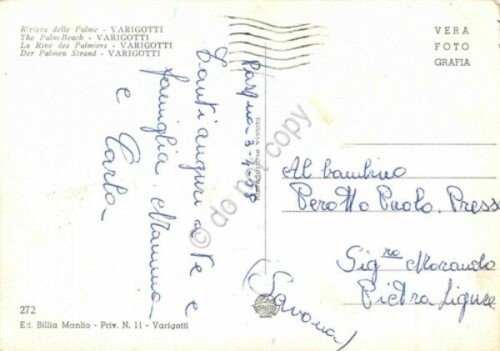 Riviera delle Palme - VARIGOTTI
The Palm-Beach - VARIGOTTI
La Rive des Palmiers - VARIGOTTI
Der Palmen Strand - VARIGOTTI
VERA
FOTO
GRAFIA
Tanti auguri a te e
famiglia. Mammina
e Carlo
Al bambino
Perotto Paolo. Presso
Sig.ra Morando
Pietra Ligure
(Savona)
272
Ed. Billia Manlio - Priv. N. 11 - Varigotti
do not copy